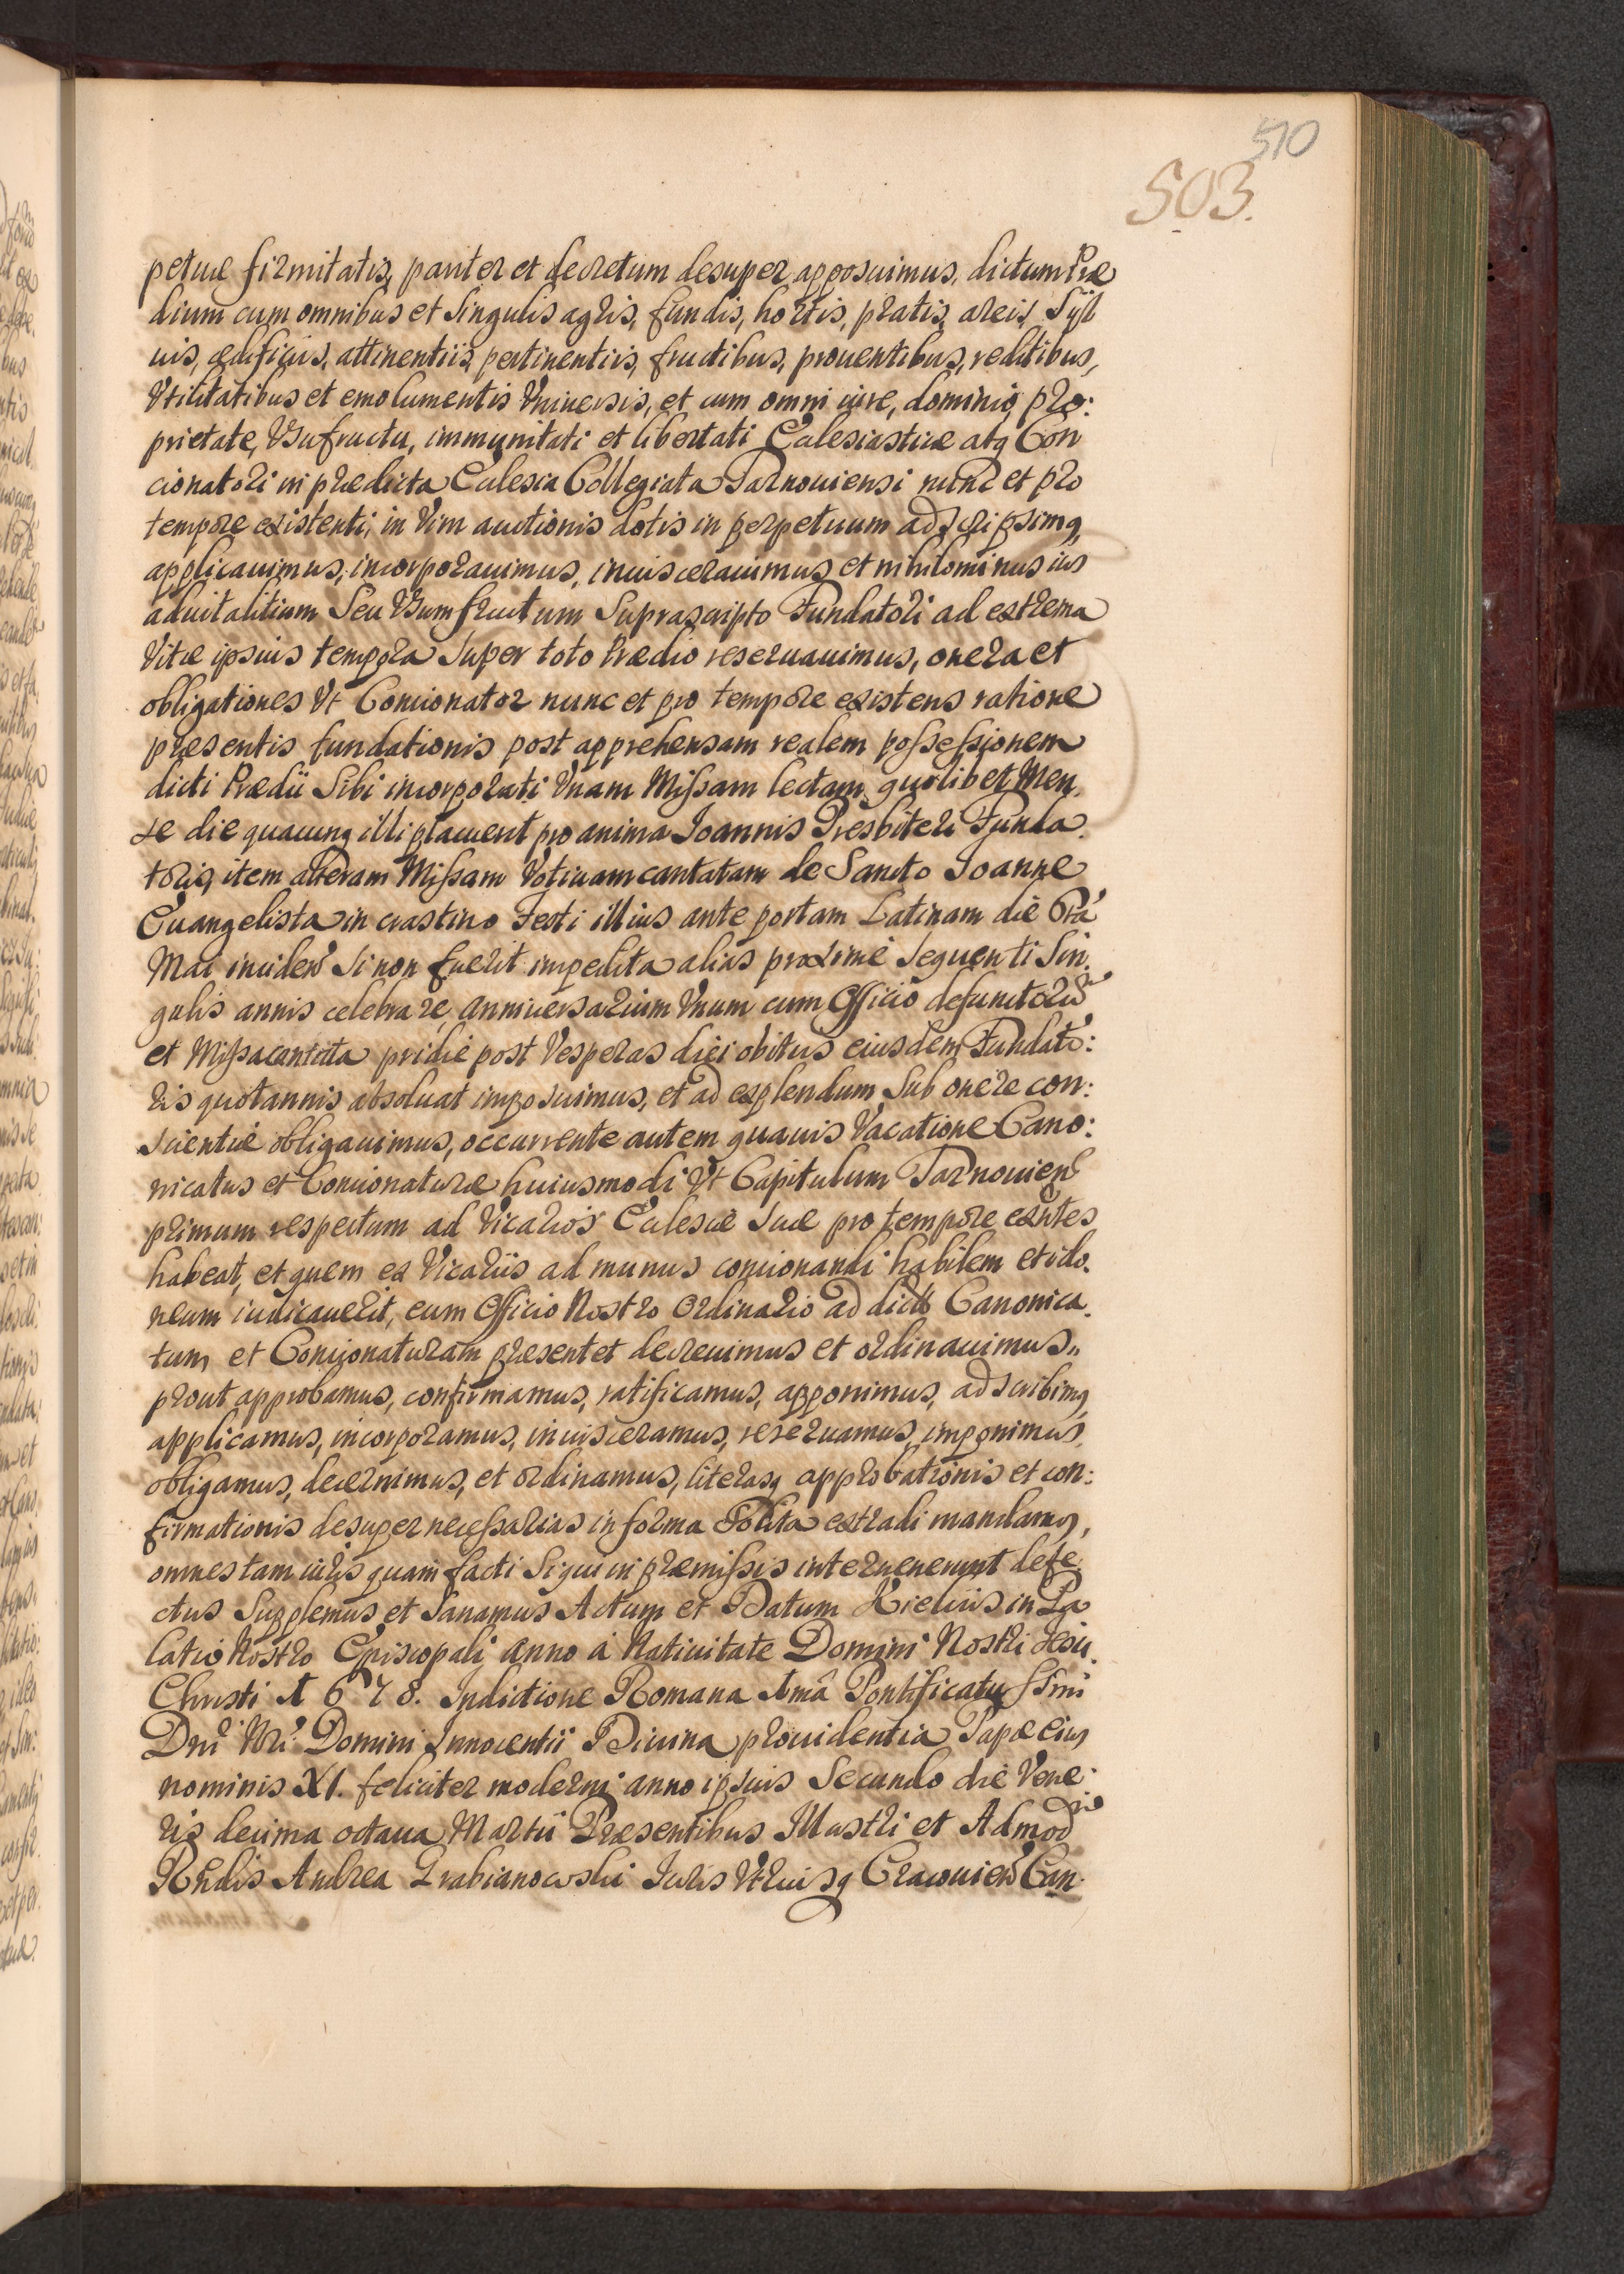 510
503.
petuæ firmitatis, pariter et decretum desuper apposuimus, dictum Præ
dium cum omnibus et Singulis agris, fundis, hortis, pratis, areis, Syl
uis, ædificiis, attinentiis, pertinentiis, fructibus, prouentibus, reditibus,
Vtilitatibus et emolumentis Vniuersis, et cum omni iure, dominio, pro:
prietate, Vsufructu, immunitati et libertati Ecclesiasticæ atq Con
cionatori in prædicta Ecclesia Collegiata Tarnouiensi nunc et pro
tempore existenti, in Vim auctionis dotis in perpetuum adscripsimq
applicauimus, incorporauimus, inuiscerauimus, et nihilominus ius
aduitalitium Seu Vsumfructum Suprascripto Fundatori ad extrema
Vitæ ipsius tempora Super toto Prædio reseruauimus, onera et
obligationes Vt Concionator nunc et pro tempore existens ratione
præsentis fundationis post apprehensam realem possessionem
dicti Prædii Sibi incorporati Vnam Missam lectam quolibet Men.
se die quacunq illi placuerit pro anima Joannis Presbiteri Funda.
toris, item alteram Missam Votiuam cantatam de Sancto Joanne
Euangelista in crastino Festi illius ante portam Latinam die
Maii inciden Si non fuerit impedita alias proximè Sequenti Sin.
gulis annis celebrare, anniuersarium Vnum cum Officio defunctorū
et Missa cantata pridie post Vesperas diei obitus eiusdem Fundato:
ris quotannis absoluat imposuimus, et ad explendum Sub onere con:
scientiæ obligauimus, occurrente autem quauis Vacatione Cano:
nicatus et Concionaturæ huiusmodi Vt Capitulum Tarnouien
primum respectum ad Vicarios Ecclesiæ Suæ pro tempore exntes
habeat, et quem ex Vicariis ad munus concionandi habilem et ido.
neum iudicauerit, eum Officio Nostro Ordinario ad dict Canonica.
tum, et Concionaturam præsentet decreuimus et ordinauimus,,
prout approbamus, confirmamus, ratificamus, apponimus, adscribimq
applicamus, incorporamus, inuisceramus, reseruamus, imponimus,
obligamus, decernimus, et ordinamus, literasq approbationis et con:
firmationis desuper necessarias in forma Solita extradi mandamq,
omnes tam iuris quam facti Si qui in præmissis interuenerunt defe.
ctus Supplemus et Sanamus Actum et Datum Kielciis in Pa
latio Nostro Episcopali anno à Natiuitate Domini Nostri Jesu
Christi 1678. Indictione Romana 1mâ Pontificatus SSmi
Dni Nri Domini Innocentii Diuina prouidentia Papæ eius
nominis XI. feliciter moderni anno ipsius Secundo die Vene
ris decima octaua Martii Præsentibus Illustri et Admod
Rndis Andrea Grabianowski Iuris Vtriusq Cracouien Can.